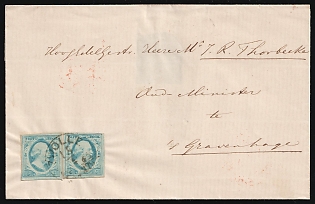 Hoogedelgestr. Heere Mr. J. R. Thorbecke
Oud-Minister
te
's Gravenhage